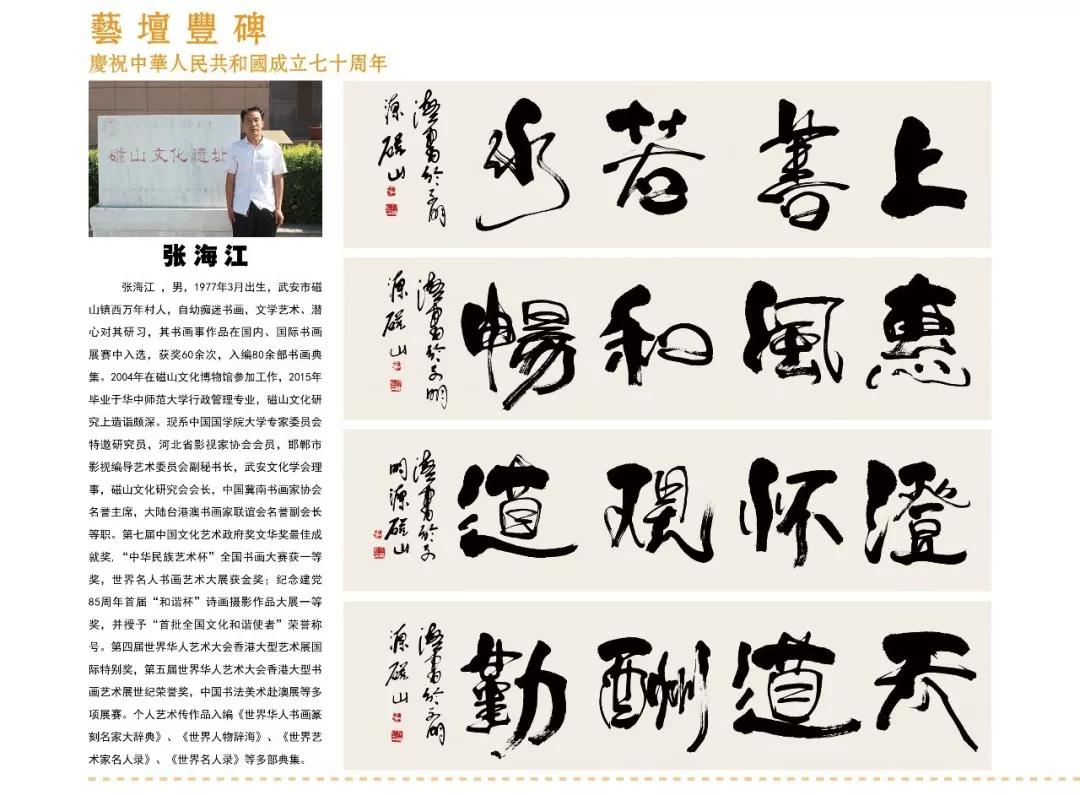 藝壇豐碑
慶祝中華人民共和國成立七十周年
磁山文化遗址
张海江
张海江，男，1977年3月出生，武安市磁
山镇西万年村人，自幼痴迷书画，文学艺术、潜
心对其研习，其书画事作品在国内、国际书画
展赛中入选，获奖60余次，入编80余部书画典
集。2004年在磁山文化博物馆参加工作，2015年
毕业于华中师范大学行政管理专业，磁山文化研
究上造诣颇深。现系中国国学院大学专家委员会
特邀研究员，河北省影视家协会会员，邯郸市
影视编导艺术委员会副秘书长，武安文化学会理
事，磁山文化研究会会长，中国冀南书画家协会
名誉主席，大陆台港澳书画家联谊会名誉副会长
等职。第七届中国文化艺术政府奖文华奖最佳成
就奖，“中华民族艺术杯”全国书画大赛获一等
奖，世界名人书画艺术大展获金奖；纪念建党
85周年首届“和谐杯”诗画摄影作品大展一等
奖，并授予“首批全国文化和谐使者”荣誉称
号。第四届世界华人艺术大会香港大型艺术展国
际特别奖，第五届世界华人艺术大会香港大型书
画艺术展世纪荣誉奖，中国书法美术赴澳展等多
项展赛。个人艺术传作品入编《世界华人书画篆
刻名家大辞典》、《世界人物辞海》、《世界艺
术家名人录》、《世界名人录》等多部典集。
上善若水
書於文明
源磁山
惠風和暢
書於文明
源磁山
澄怀观道
書於文
明源磁山
天道酬勤
書於文明
源磁山